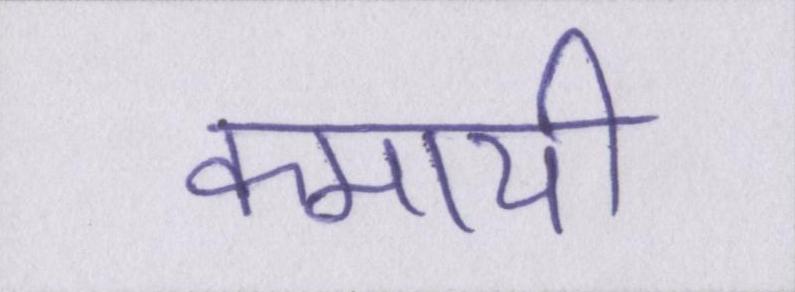 कमायी